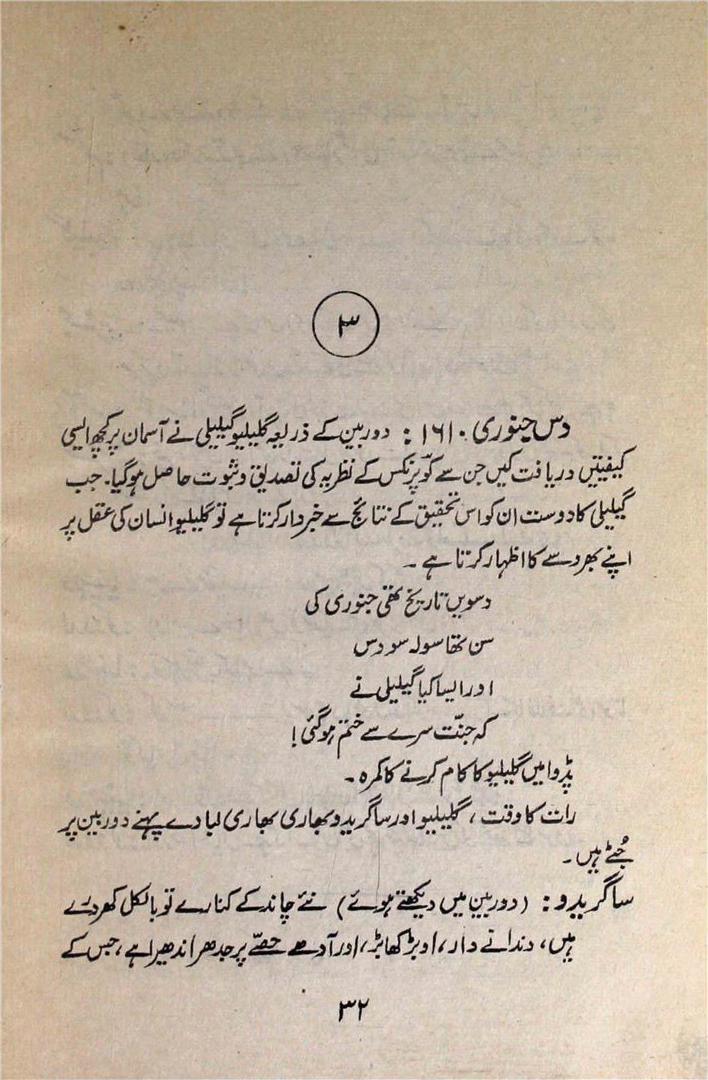 ۳
دس جنوری ۱۶۱۰: دوربین کے ذریعہ گلیلیو گیلیلی نے آسمان پر کچھ ایسی
کیفیتیں دریافت کیں جن سے کوپرنکس کے نظریہ کی تصدیق و ثبوت حاصل ہوگیا۔ جب
گیلیلی کا دوست ان کو اس تحقیق کے نتائج سے خبردار کرتا ہے تو گلیلیو انسان کی عقل پر
اپنے بھروسے کا اظہار کرتا ہے۔
دسویں تاریخ تھی جنوری کی
سن تھا سولہ سو دس
اور ایسا کیا گیلیلی نے
کہ جنّت سرے سے ختم ہوگئی!
پڈوا میں گلیلیو کا کام کرنے کا کمرہ۔
رات کا وقت، گلیلیو اور ساگریدو بھاری بھاری لبادے پہنے دوربین پر
جُٹے ہیں۔
ساگریدو: (دوربین میں دیکھتے ہوئے) نئے چاند کے کنارے تو بالکل کھردرے
ہیں، دندانے دار، اوبڑ کھابڑ، اور آدھے حصّے پر جدھر اندھیرا ہے، جس کے
۳۲